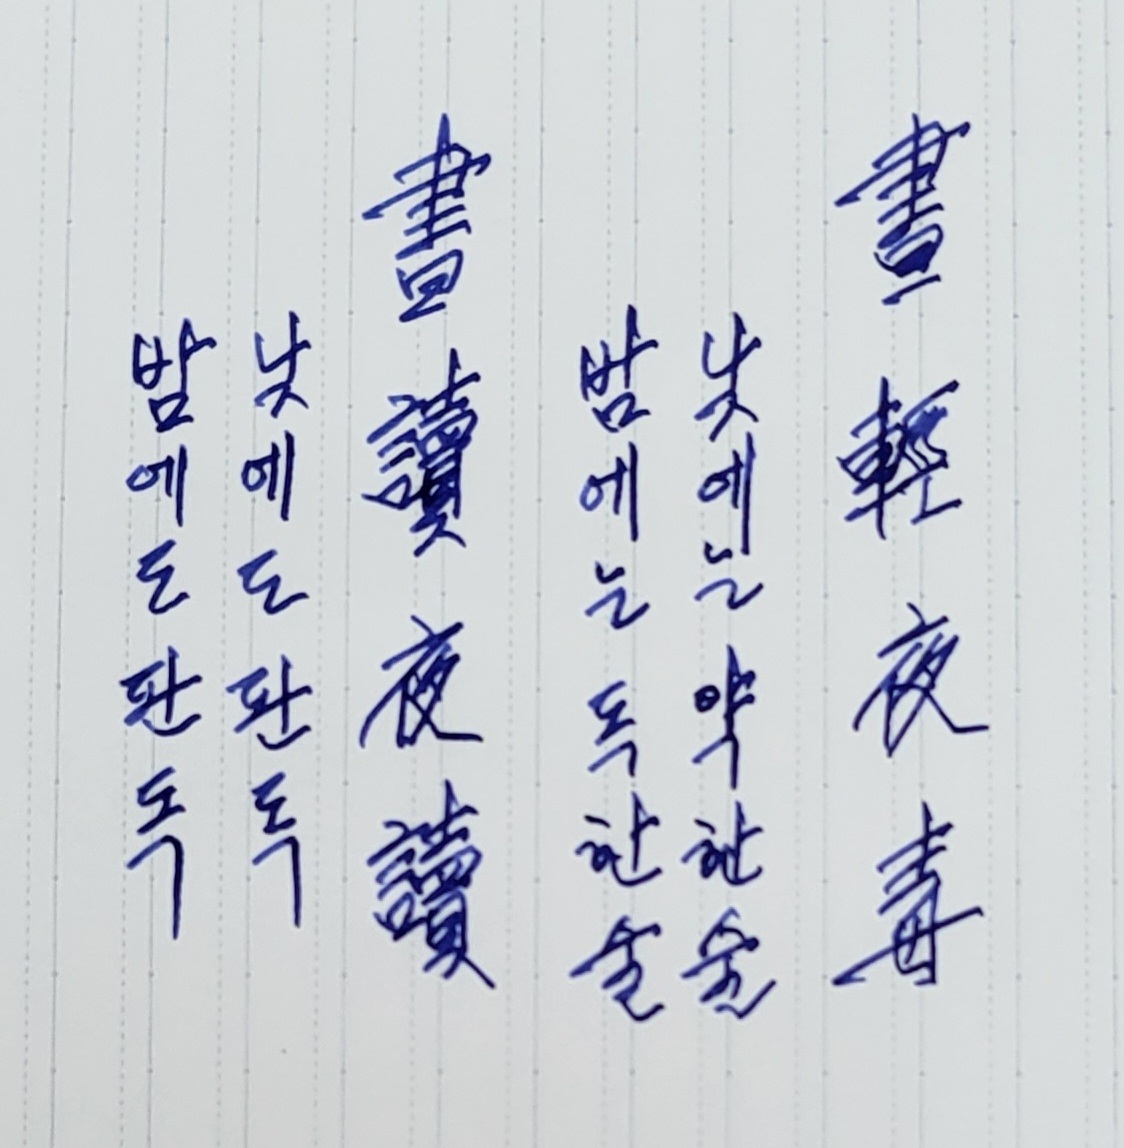 晝輕夜毒
낮에는 약한 술
밤에는 독한 술
晝讀夜讀
낮에도 판독
밤에도 판독